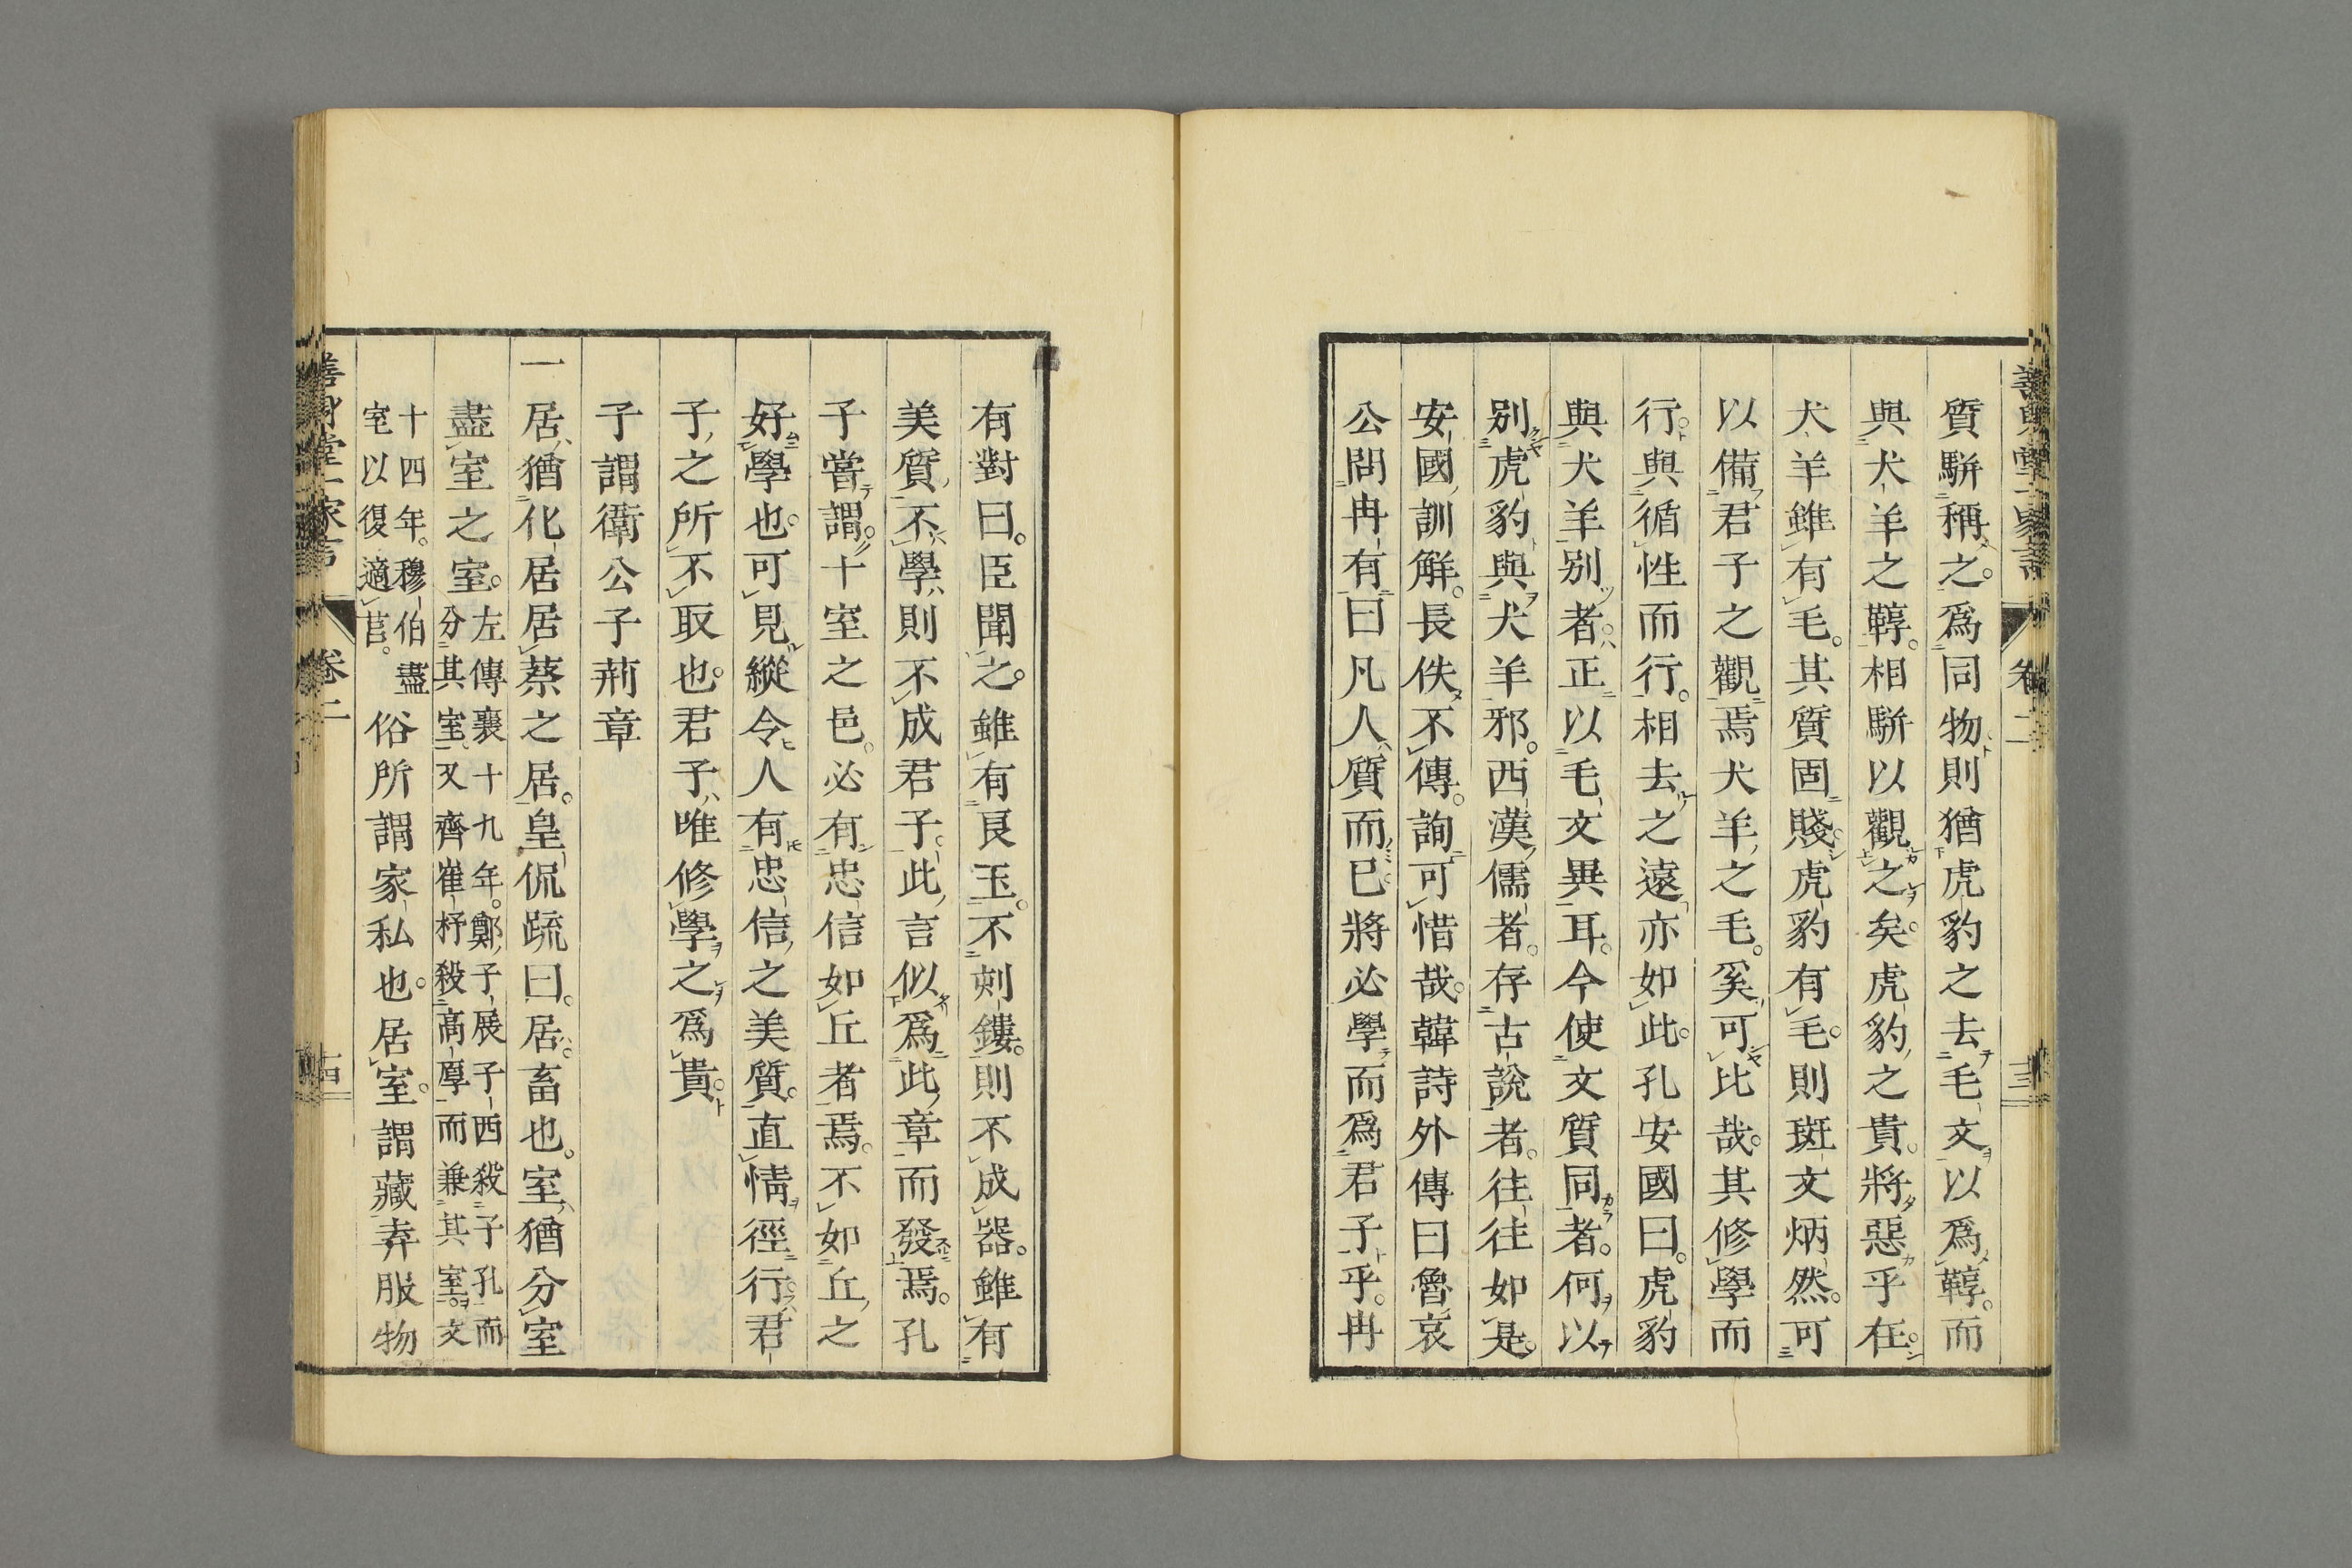 質駢稱之。爲同物則猶虎豹之去毛文以爲鞟。而
與犬羊之鞟。相駢以觀之矣。虎豹之貴。將惡乎在。
犬羊雖有毛。其質固賤。虎豹有毛。則斑文炳然。可
以備君子之觀焉犬羊之毛。奚可比哉。其修學而
行。與循性而行。相去之遠亦如此。孔安國曰。虎豹
與犬羊別者。正以毛文異耳。今使文質同者。何以
別虎豹與犬羊邪。西漢儒者。存古說者。往往如是。
安國訓解。長佚不傳。詢可惜哉。韓詩外傳曰魯哀
公問冉有曰凡人質而已將必學而爲君子乎。冉
有對曰。臣聞之。雖有良玉。不刻鏤。則不成器。雖有
美質不學則不成君子。此言似爲此章而發焉。孔
子嘗謂。十室之邑。必有忠信如丘者焉。不如丘之
好學也。可見縱令人有忠信之美質。直情徑行。君
子之所不取也。君子唯修學之爲貴。
子謂衛公子荊章
一居猶化居居蔡之居。皇侃疏曰。居。畜也。室猶分室
盡室之室。左傳襄十九年。鄭子展子西殺子孔而
分其室。又齊崔杼殺高厚而兼其室。文
十四年。穆伯盡
室以復適莒。俗所謂家私也。居室。謂藏弆服物
卷二
卷二